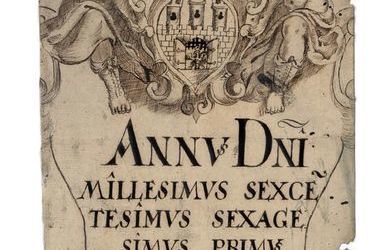 ANNVS DÑI
MÎLLESIMVS SEXCẼ
TESÎMVS SEXAGE
SIMVS PRIMVS